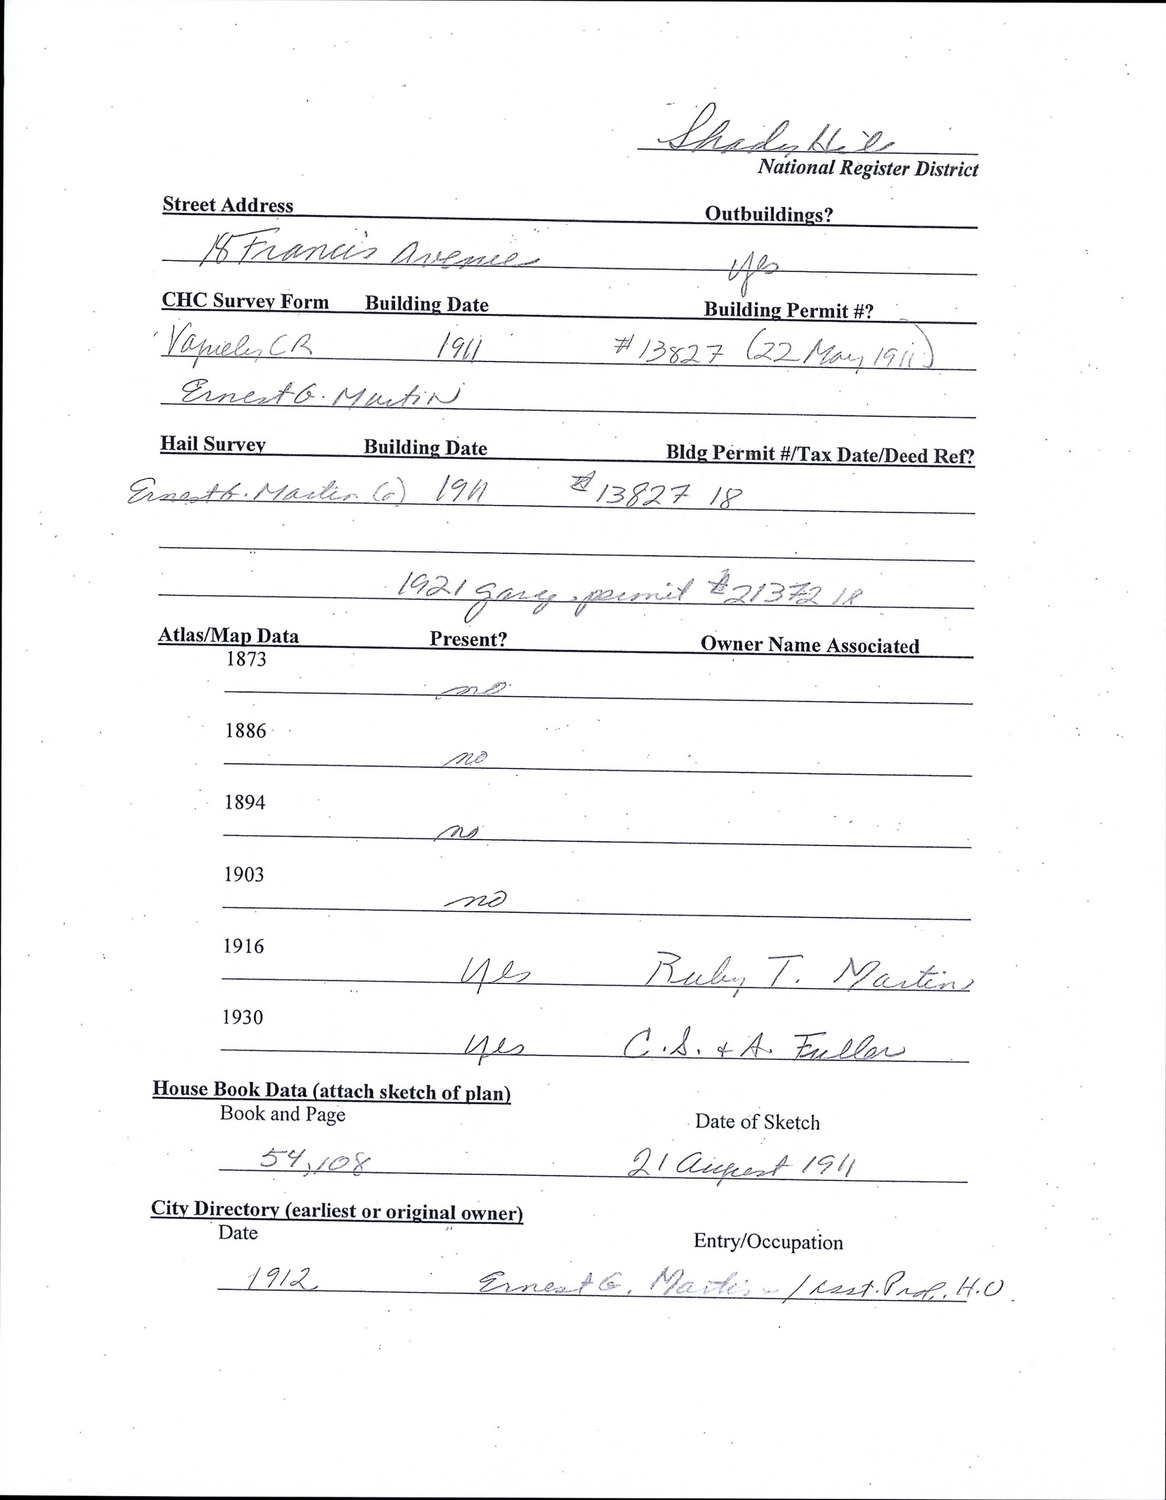 Shady Hill
National Register District
Street Address Outbuildings?
18 Francis Avenue yes
CHC Survey Form Building Date Building Permit #?
1911 #13827 (22 May, 1911)
Ernest G. Martin
Hail Survey Building Date Bldg Permit #/Tax Date/Deed Ref?
Ernest G. Martin (o) 1911 #13827 18
1921 garage permit #21372 18
Atlas/Map Data Present? Owner Name Associated
1873
no
1886
no
1894
no
1903
no
1916
yes Ruby T. Martin
1930
yes C.S. + A. Fuller
House Book Data (attach sketch of plan)
Book and Page Date of Sketch
54,108 21 August 1911
City Directory (earliest or original owner)
Date Entry/Occupation
1912 Ernest G. Martin / Asst. Prof. H.U